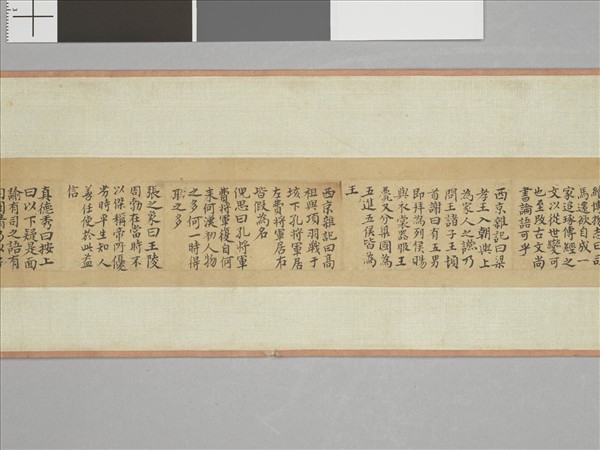 馬遷欲自成一
家迂琢傳經之
文以從世變可
也至改古文尚
書論語可乎
西京雜記曰梁
孝王入朝與上
為家人之讌乃
問王諸子王頓
首謝曰有五男
即拜為列侯賜
與衣裳器服王
薨又分梁國為
五進五侯皆為
王
西京雜記曰高
祖與項羽戰于
垓下孔將軍居
左費將軍居右
皆假為名
倪思曰孔將軍
費將軍復自何
來何漢初人物
之多何一時得
之多
張之象曰王陵
周勃在當時不
以傑稱帝所優
劣時平生知人
善任使於此益
信
真德秀曰按上
曰以下疑是面
諭有司之語有